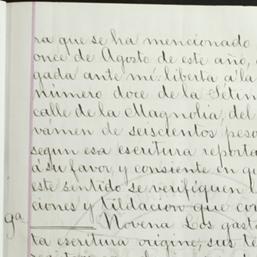 ra que se ha mencionado
once de Agosto de este año,
gada ante mi liberta a la
número doce de la Sétim
calle de la Magnolia, del
vamen de seiscientos peso
segun esa escritura reporta
á su favor, y consiente en qu
este sentido se verifiquen l
ciones y tildacion que cor
ga Novena Los gast
ta escritura origine, sus te